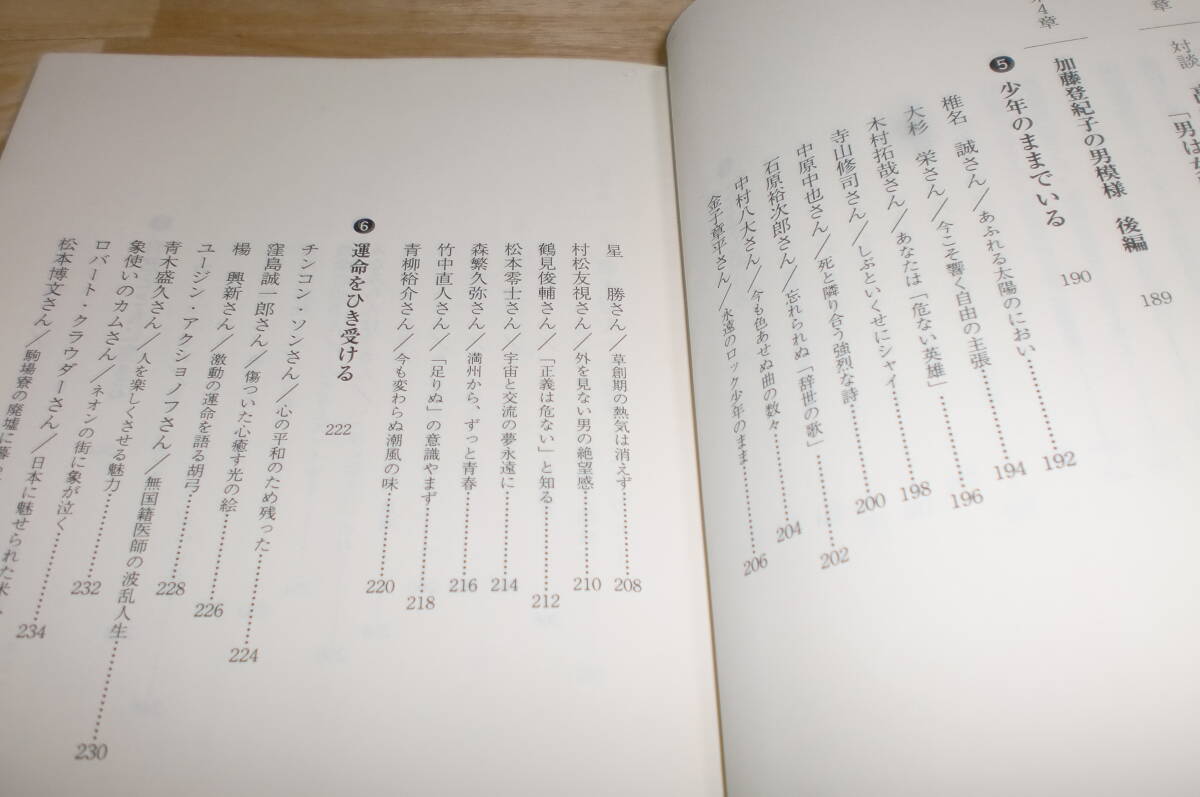 章
対談
「男は
4章
加藤登紀子の男模様 後編 189
❺ 少年のままでいる 190
椎名 誠さん／あふれる太陽のにおい……192
大杉 栄さん／今こそ響く自由の主張……194
木村拓哉さん／あなたは「危ない英雄」……196
寺山修司さん／しぶといくせにシャイ……198
中原中也さん／死と隣り合う強烈な詩……200
石原裕次郎さん／忘れられぬ「辞世の歌」……202
中村八大さん／今も色あせぬ曲の数々……204
金子章平さん／永遠のロック少年のまま……206
星 勝さん／草創期の熱気は消えず……208
村松友視さん／外を見ない男の絶望感……210
鶴見俊輔さん／「正義は危ない」と知る……212
松本零士さん／宇宙と交流の夢永遠に……214
森繁久弥さん／満州から、ずっと青春……216
竹中直人さん／「足りぬ」の意識やまず……218
青柳裕介さん／今も変わらぬ潮風の味……220
❻ 運命をひき受ける 222
チンコン・ソンさん／心の平和のため残った……224
窪島誠一郎さん／傷ついた心癒す光の絵……226
楊 興新さん／激動の運命を語る胡弓……228
ユージン・アクショノフさん／無国籍医師の波乱人生……230
青木盛久さん／人を楽しくさせる魅力……232
象使いのカムさん／ネオンの街に象が泣く……234
ロバート・クラウダーさん／日本に魅せられた米
松本博文さん／駒場寮の廃墟に暮